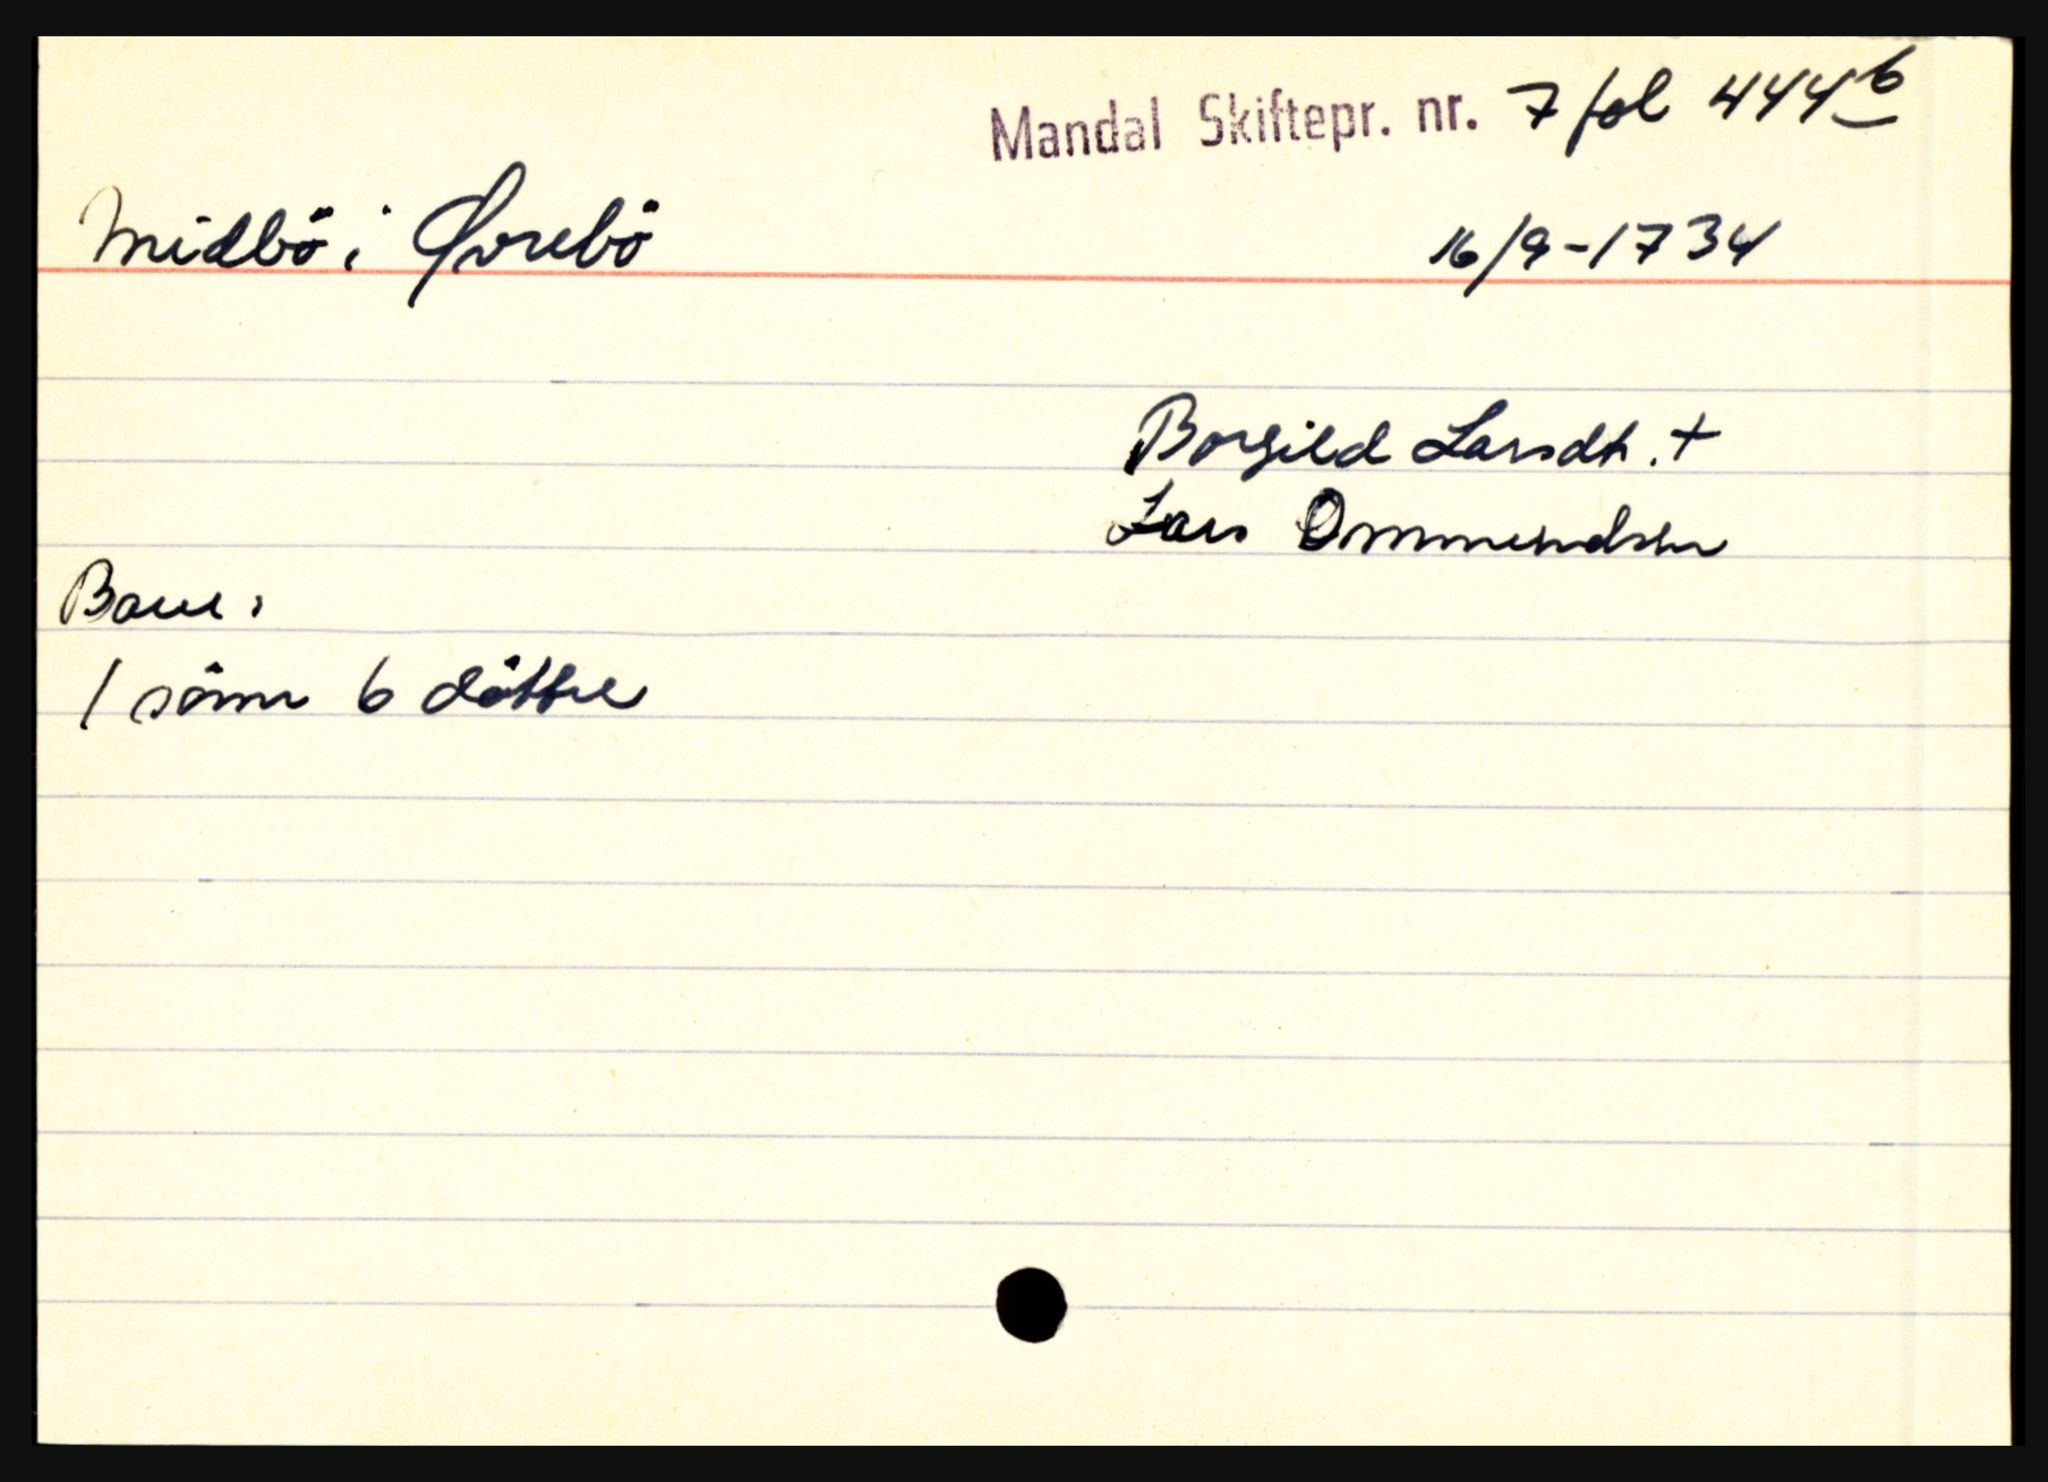 Mandal Skiftepr. nr. 7 fol 444b
Midbö i Øvrebö 16/9-1734
Borgild Larsdt. +
Lars Ommundsen
Barn:
1 sönn 6 döttre